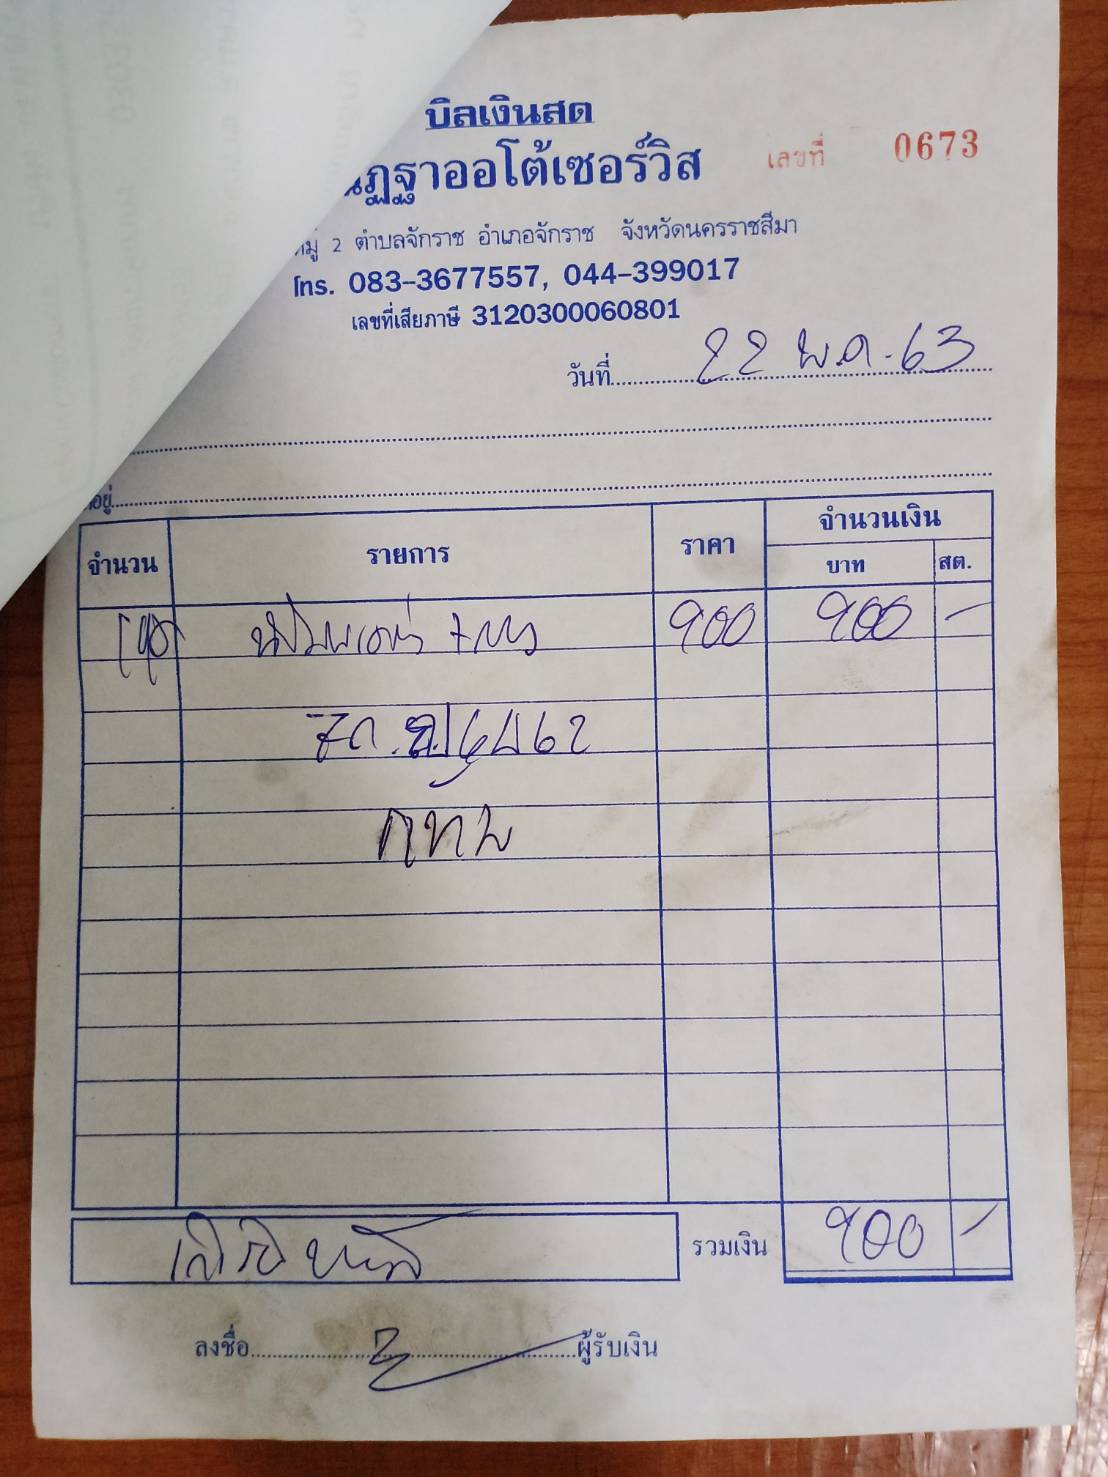 บิลเงินสด
ออโต้เซอร์วิส
เลขที่ 0673
หมู่ 2 ตำบลจักราช อำเภอจักราช จังหวัดนครราชสีมา
โทร. 083-3677557, 044-399017
เลขที่เสียภาษี 3120300060801
วันที่ 22 พ.ค. 63
อยู่
จำนวน รายการ ราคา จำนวนเงิน
บาท สต.
900 900 -
กทม
รวมเงิน 900 -
ลงชื่อ ผู้รับเงิน